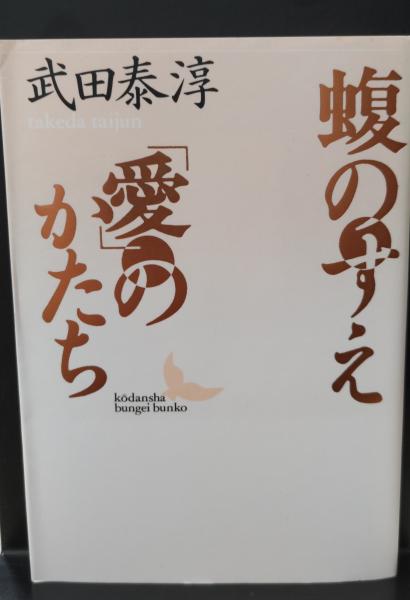 蝮のすえ
「愛」の
かたち
武田泰淳
takeda taijun
kōdansha
bungei bunko